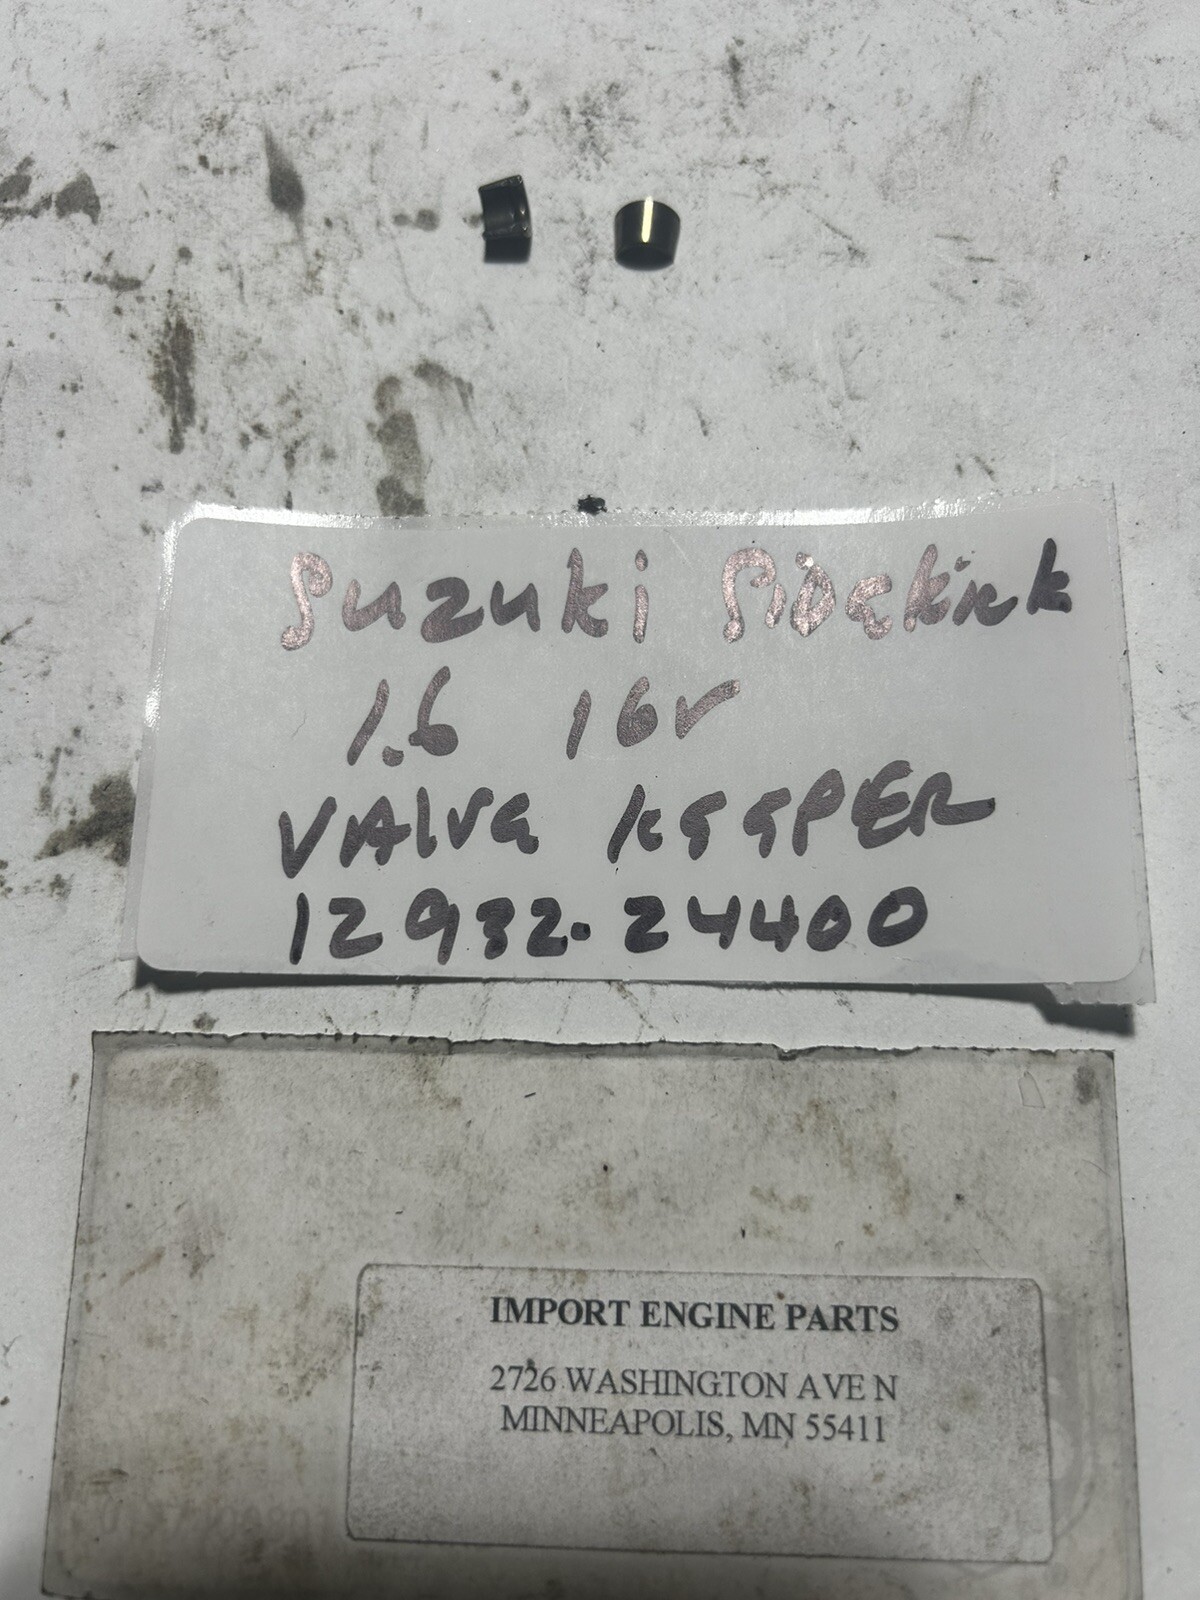 Suzuki Sidekick
1.6 16v
VALVE KEEPER
12932-24400
IMPORT ENGINE PARTS
2726 WASHINGTON AVE N
MINNEAPOLIS, MN 55411